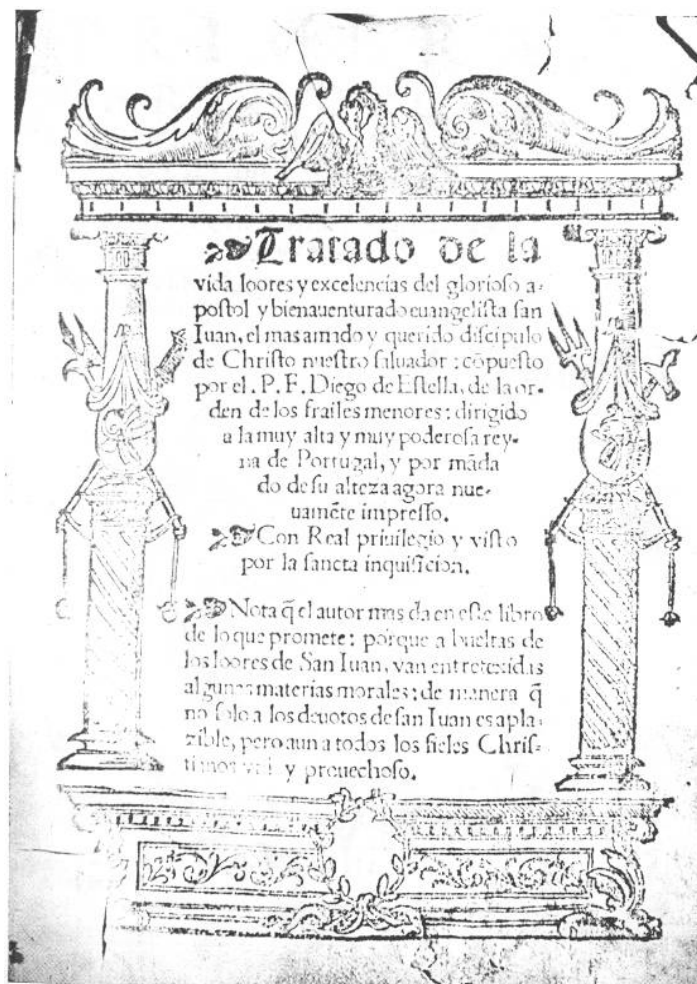 Tratado de la
vida loores y excelencias del glorioso a-
postol y bienauenturado euangelista san
Iuan, el mas amado y querido discipulo
de Christo nuestro saluador: cõpuesto
por el. P. F. Diego de Estella, de la or-
den de los frailes menores: dirigido
a la muy alta y muy poderosa rey-
na de Portugal, y por mãda
do de su alteza agora nue-
uamẽte impresso.
Con Real priuilegio y visto
por la sancta inquisicion.
Nota q̃ el autor mas da en este libro
de lo que promete: porque a bueltas de
los loores de San Iuan, van entretexidas
algunas materias morales: de manera q̃
no solo a los deuotos de san Iuan es apla-
zible, pero aun a todos los fieles Chris-
y prouechoso.